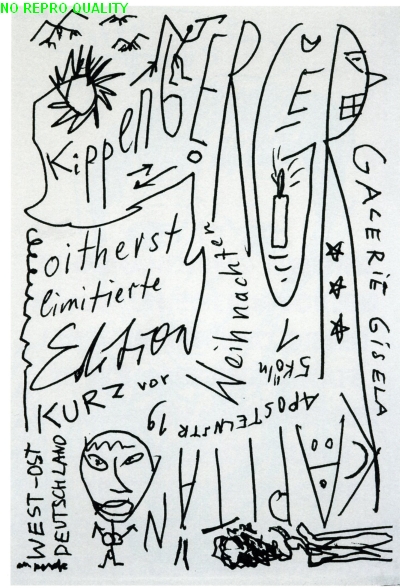 NO REPRO QUALITY
KippenBERGER
oitherst
limitierte
Edition
KURZ vor
Weihnachten
GALERIE GISELA
CAPITAIN
APOSTELNSTR 19
5 Köln 1
WEST-OST
DEUTSCHLAND